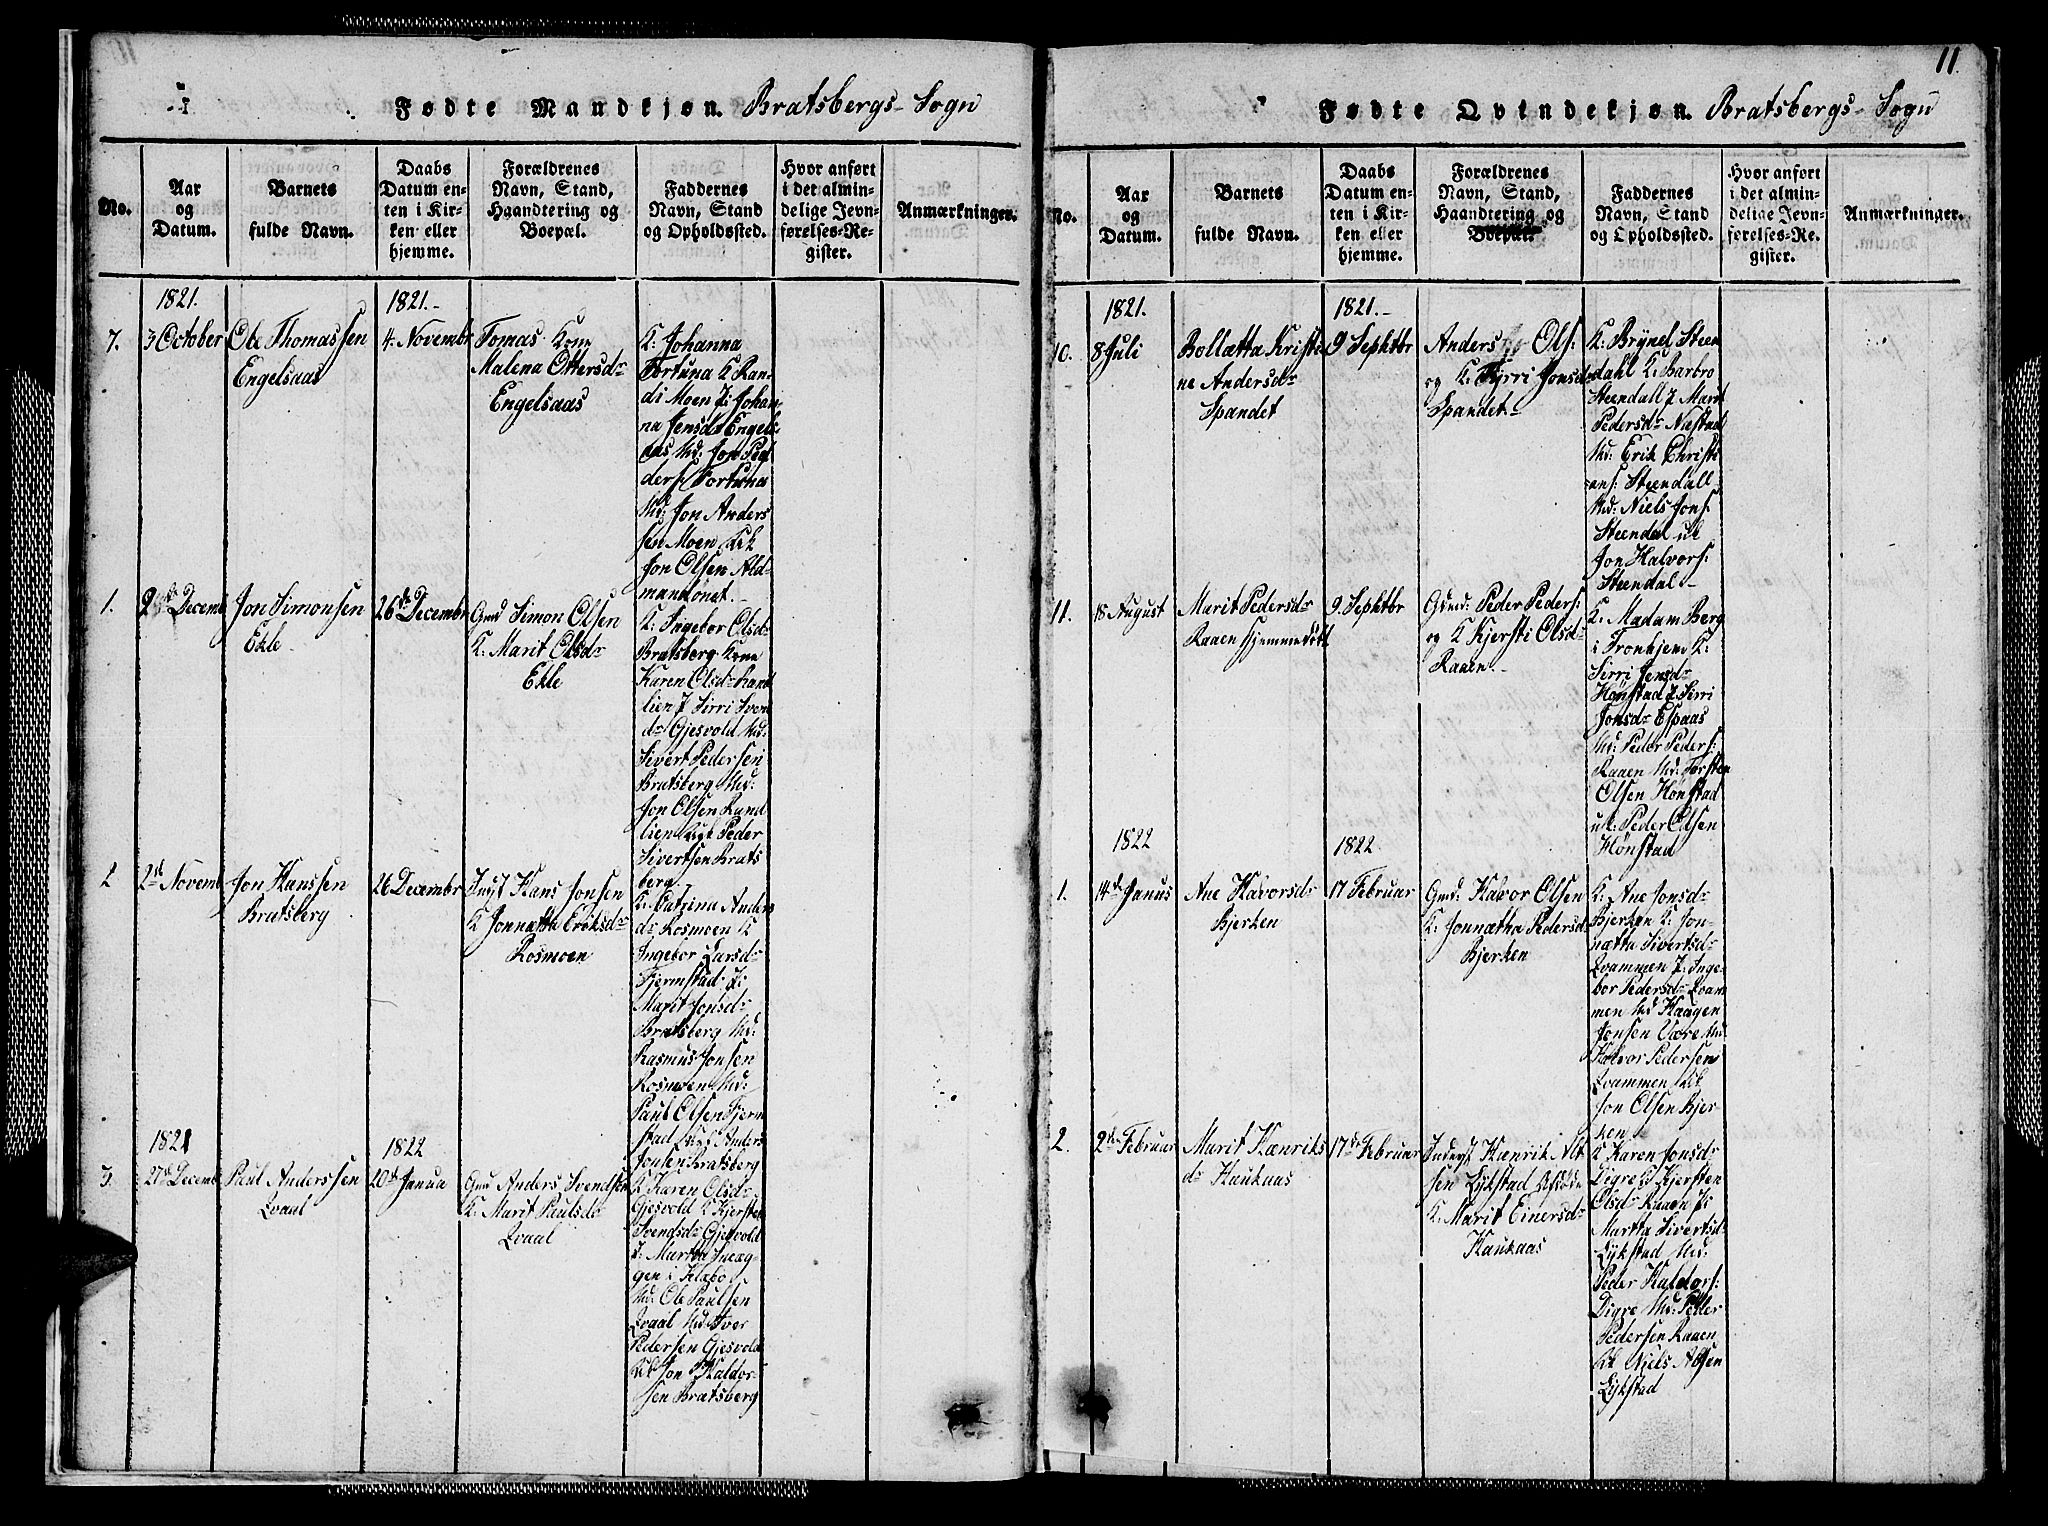 Fødte Mandkjøn. Bratsbergs Sogn
No.
Aar
og
Datum.
Barnets
fulde Navn.
Daabs
Datum en-
ten i Kir-
ken eller
hjemme.
Forældrenes
Navn, Stand,
Haandtering og
Boepæl.
Faddernes
Navn, Stand
og Opholdssted.
Hvor anført
i det almin-
delige Jevn-
førelses-Re-
gister.
Anmærkninger.
1821.
7.
3 October
Ole Thomassen
Engelsaas
1821.
4. Novembr
Tomas Kone
Malena Ottersdr
Engelsaas
K: Johanna
Fortuna K Ran-
di Moen J: Johan
na Jensdr Engels
aas Md: Jon Ped
ders: Fortuna
Md: Jon Anders
sen Moen
Jon Olsen Ald-
1.
Decemb
Jon Simonsen
Ekle
26de Decembr
Gmd Simon Olsen
K. Marit Olsdr
Ekle
K: Ingebor Olsdr
Bratsberg Kone
Karen Olsdr Rand
lien J Sirri Sven
dr Gjesvold Md:
Sivert Pedersen
Bratsberg Md:
Jon Olsen Rand
lien Peder
Sivertsen Brats
berg.
2
2d Novemb
Jon Hanssen
Bratsberg
26 Decembr
Hans Jonsen
K Jonnetha Eriksdr
Rosmoen
K: Catrina Anders
dr Rosmoen K
Ingebor Larsdr
Fjermstad J:
Marit Jonsdr
Bratsberg Md:
Rasmus Jonsen
Rosmoen Md:
Paul Olsen Fjerm
stad Anders
Jonsen Bratsberg
1821
3.
27de Decemb
Paul Anderssen
Qvaal
1822
20de Janua
Gmd Anders Svendsen
K. Marit Paulsdr
Qvaal
K Karen Olsdr
Gjesvold K Kjersten
Svendsdr Gjesvold
J: Martha
gen i Klæbo
Md: Ole Paulsen
Qvaal Md Iver
Pedersen Gjesvold
Jon Haldor-
sen Bratsberg
11
Fødte Qvindekjøn. Bratsbergs Sogn
No.
Aar
og
Datum.
Barnets
fulde Navn.
Daabs
Datum en-
ten i Kir-
ken eller
hjemme.
Forældrenes
Navn, Stand,
Haandtering og
Boepæl.
Faddernes
Navn, Stand
og Opholdssted.
Hvor anført
i det almin-
delige Jevn-
førelses-Re-
gister.
Anmærkninger.
1821.
10.
8 Juli
Bollætta Kristi
ne Andersdr
Spandet
1821.
9 Sephtbr
Anders Ols:
og K: Sirri Jonsdr
Spandet
K: Brynel Steen
dahl K: Barbro
Steendall J Marit
Pedersdr Næstad
Md: Erik Christi
ans: Steendall
Md: Niels Jons:
Steendal uk
Jon Halvors:
Steendal
11.
18 August
Marit Pedersdr
Raaen Hjemmedøbt
9. Sephtbr
Gmd: Peder Peders:
og K Kjersti Olsdr
Raaen
K: Madam Berg
i Tronhjem K:
Sirri Jensdr
Hønstad J: Sirri
Jonsdr Espaas
Md: Peder Peders:
Raaen Md: Torsten
Olsen Hønstad
uk: Peder Olsen
Hønstad
1822
1.
14de Janus
Ane Havorsdr
Bjerken
1822
17 Februar
Gmd: Halvor Olsen
K: Jonnætha Pedersdr
Bjerken
K: Ane Jonsdr
Bjerken K: Jon-
nætta Sivertsdr
Qvammen J: Inge-
bor Pedersdr Qvam
men Md Haagen
Jonsen Være Md:
Halvor Pedersen
Qvammen
Jon Olsen Bjer
ken
2.
2de Februar
Marit Henriks
dr Haukaas
17de Februar
Inderst Henrik Alt
sen Lykstad
K: Marit Einersdr
Haukaas
K Karen Jonsdr
Digre K Kjersten
Olsdr Raaen J:
Martta Sivertsdr
Lykstad Md:
Peder Haldors:
Digre Md: Peder
Pedersen Raaen
Niels Altsen
Lykstad